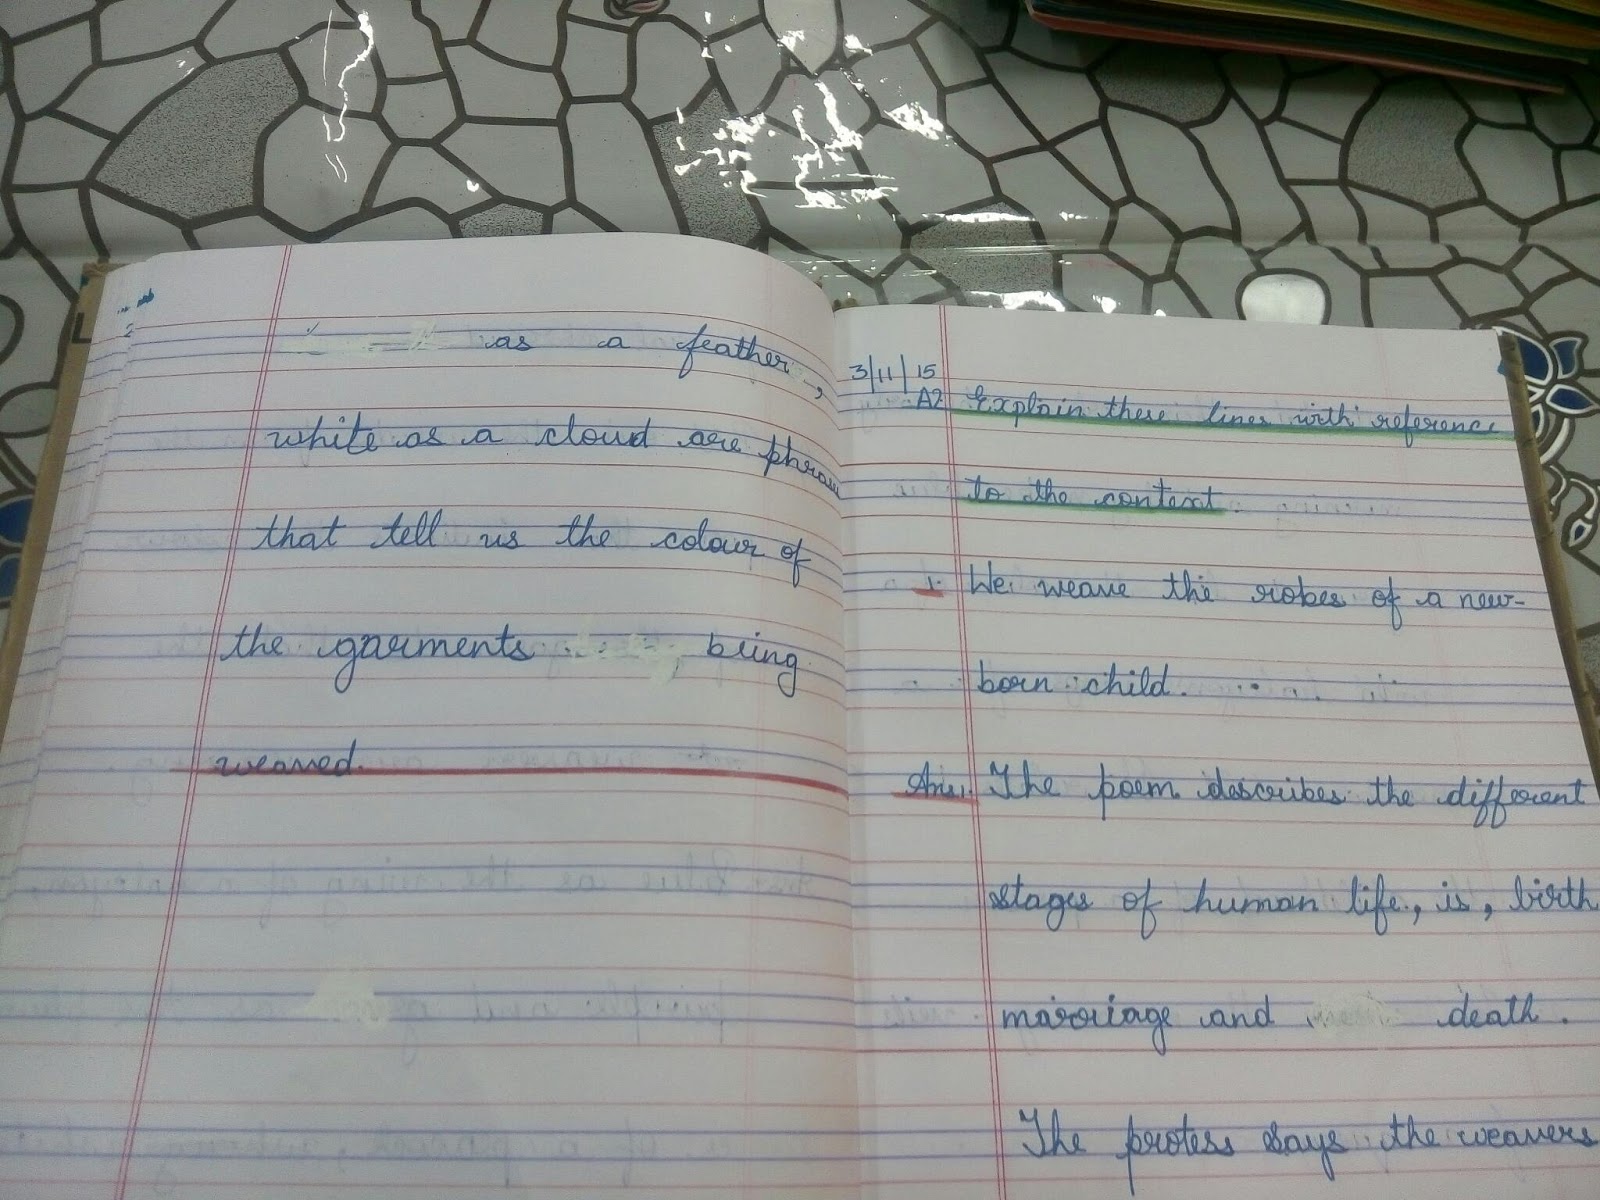 as a feather,
white as a cloud are phrases
that tell us the colour of
the garments being
weaved.
3/11/15
A2 Explain these lines with reference
to the context.
1. We weave the robes of a new-
born child.
Ans1. The poem describes the different
stages of human life, is, birth
marriage and death.
The protess says the weavers